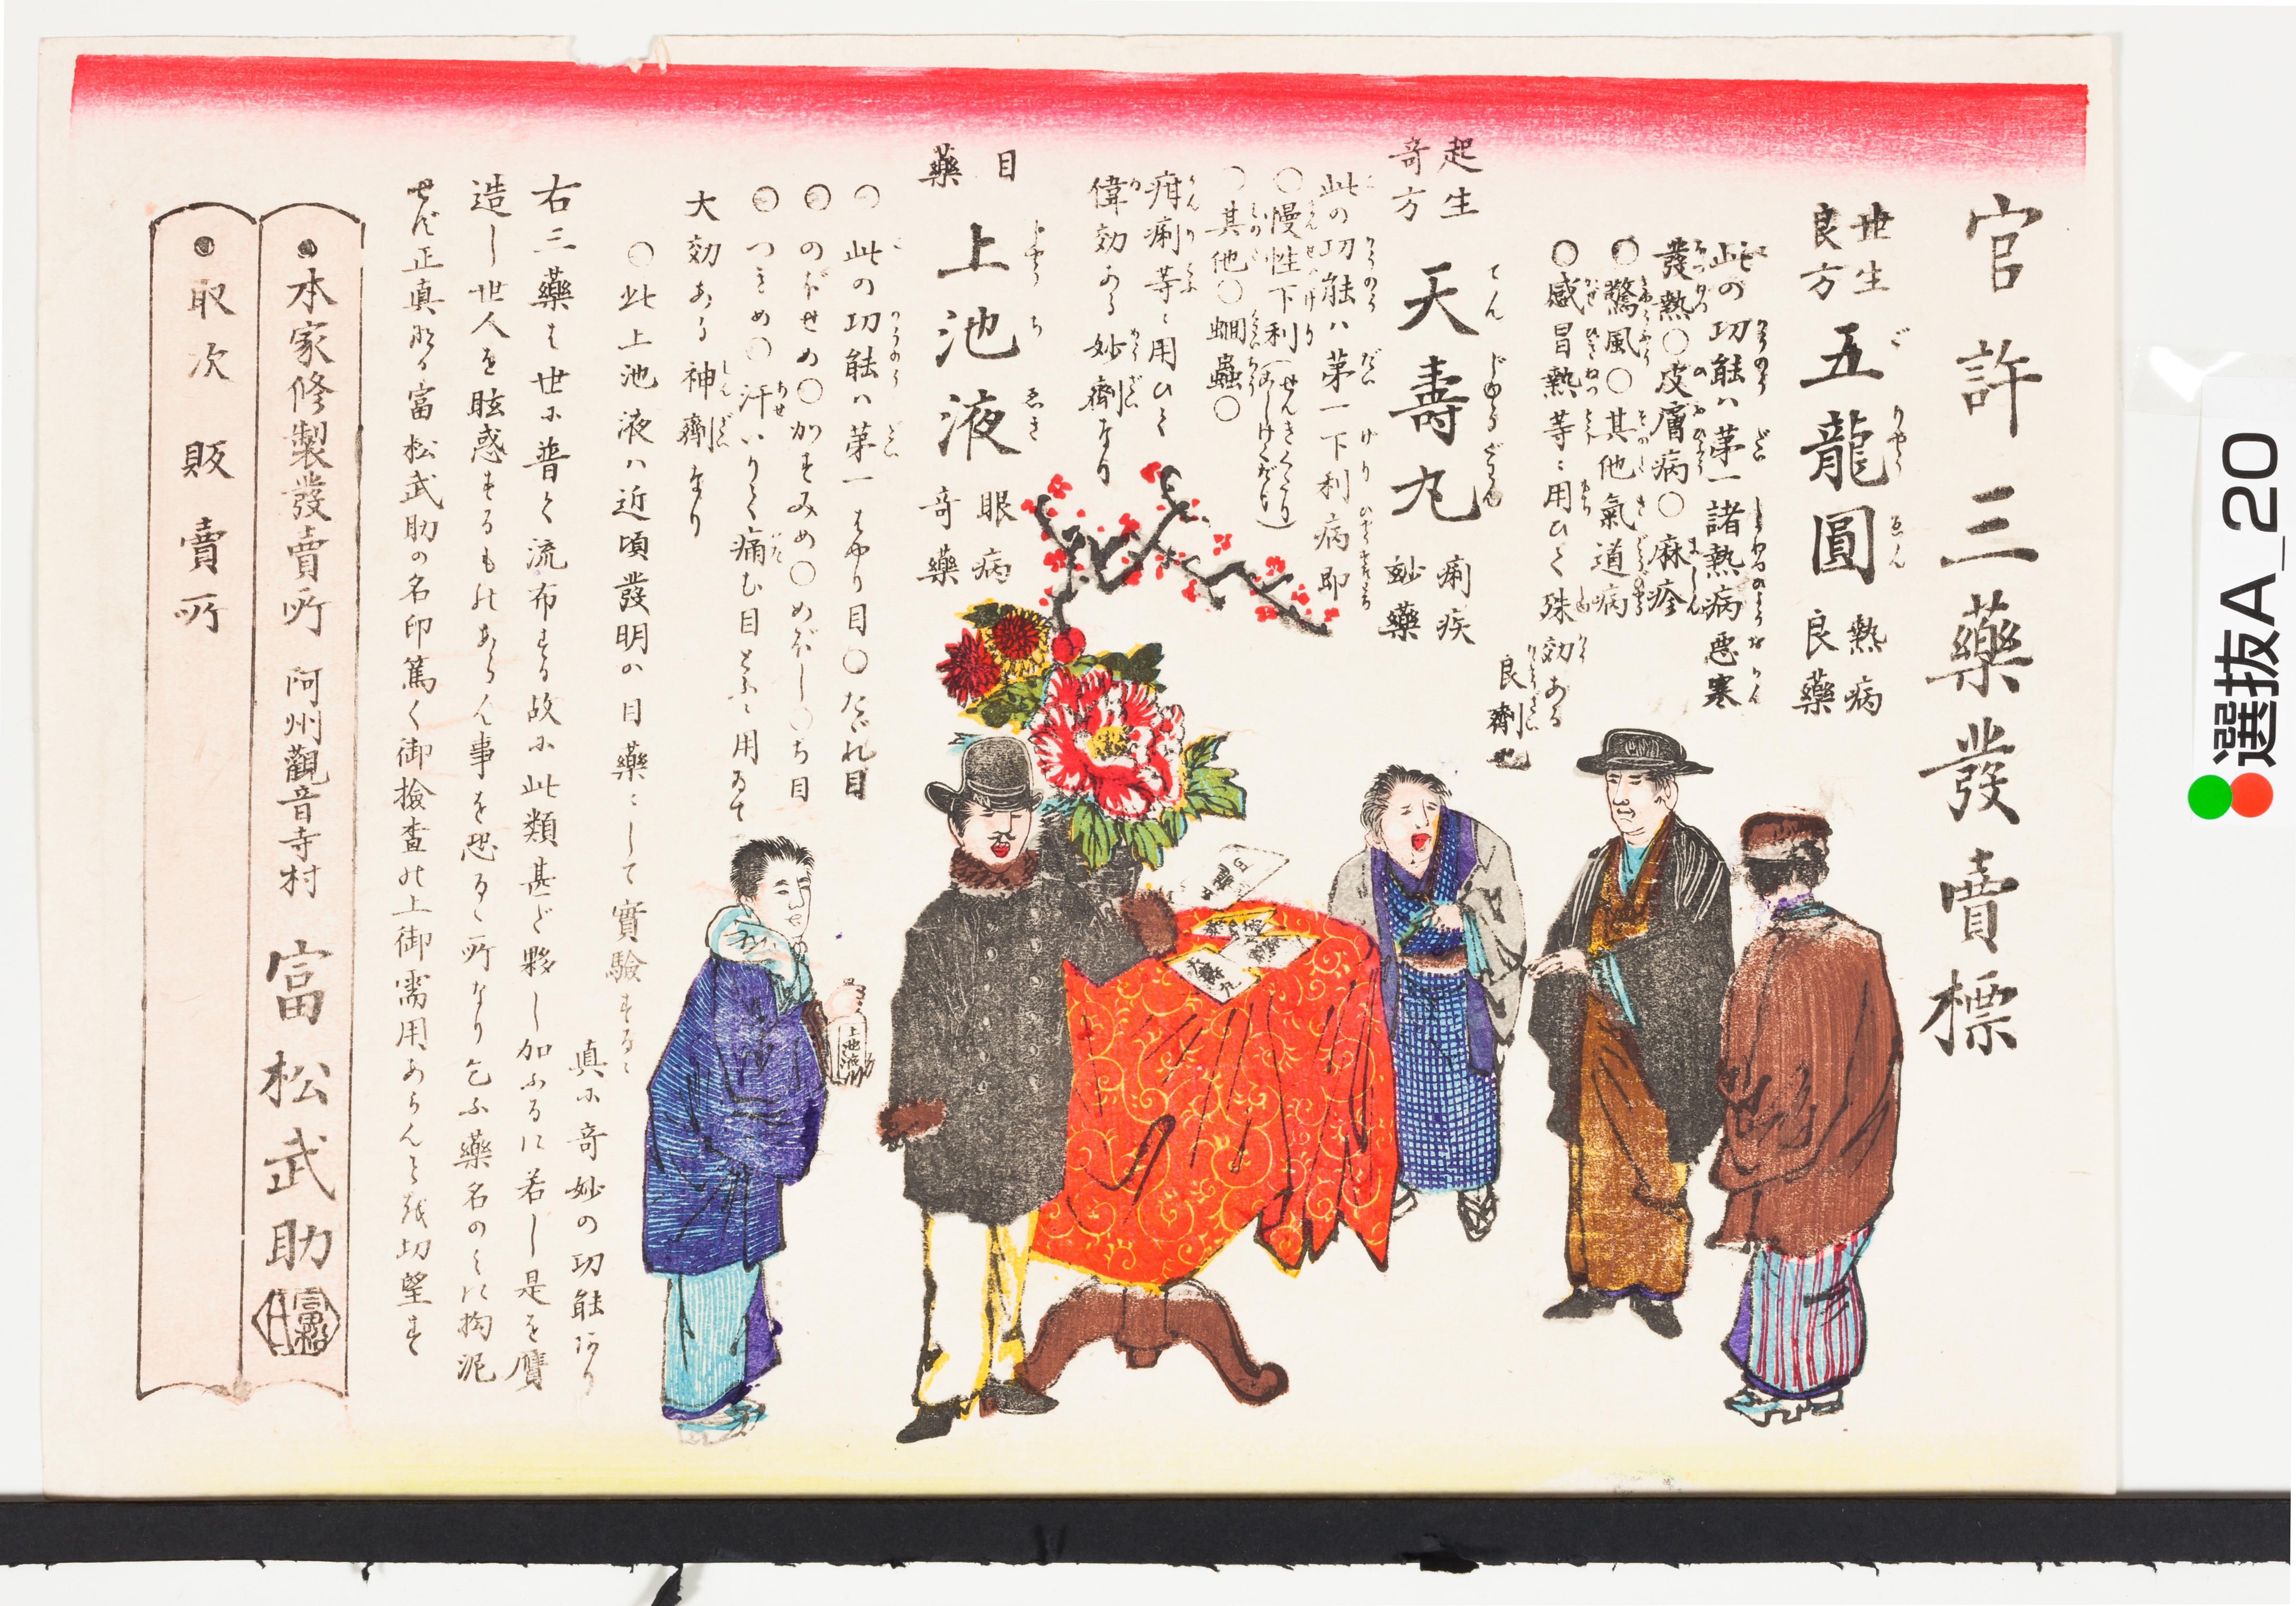 官許三藥發賣標
世生
良方
五龍圓
ご りやう ゑん
熱病
良藥
此の功能ハ第一諸熱病悪寒
發熱○皮膚病○麻疹
○驚風○其他氣道病
○感冒熱等ニ用ひて殊効ある
良劑也
起生
奇方
天壽丸
てん じゆ ぐわん
痢疾
妙藥
此の功能ハ第一下利病即
○慢性下利
○其他○蛔蟲○
疳痢等ニ用ひて
偉効ある妙劑なり
目
藥
上池液
じやう ち ゑき
眼病
奇藥
○此の功能ハ第一はやり目○たゞれ目
○のぼせめ○かすみめ○めぼし○ち目
○つきめ○汗いりて痛む目とふニ用ゐて
大効ある神劑なり
○此上池液ハ近頃發明の目藥ニして實驗するニ
真に奇妙の功能あり
右三藥は世に普く流布する故に此類甚ど夥し加ふるに若し是を贋
造し世人を眩惑するものあらん事を恐るゝ所なり乞ふ藥名のみに拘泥
せず正真なる富松武助の名印篤く御撿査の上御需用あらんことを切望す
●本家修製發賣所 阿州觀音寺村 富松武助
●取次販賣所
上池液
選抜A_20